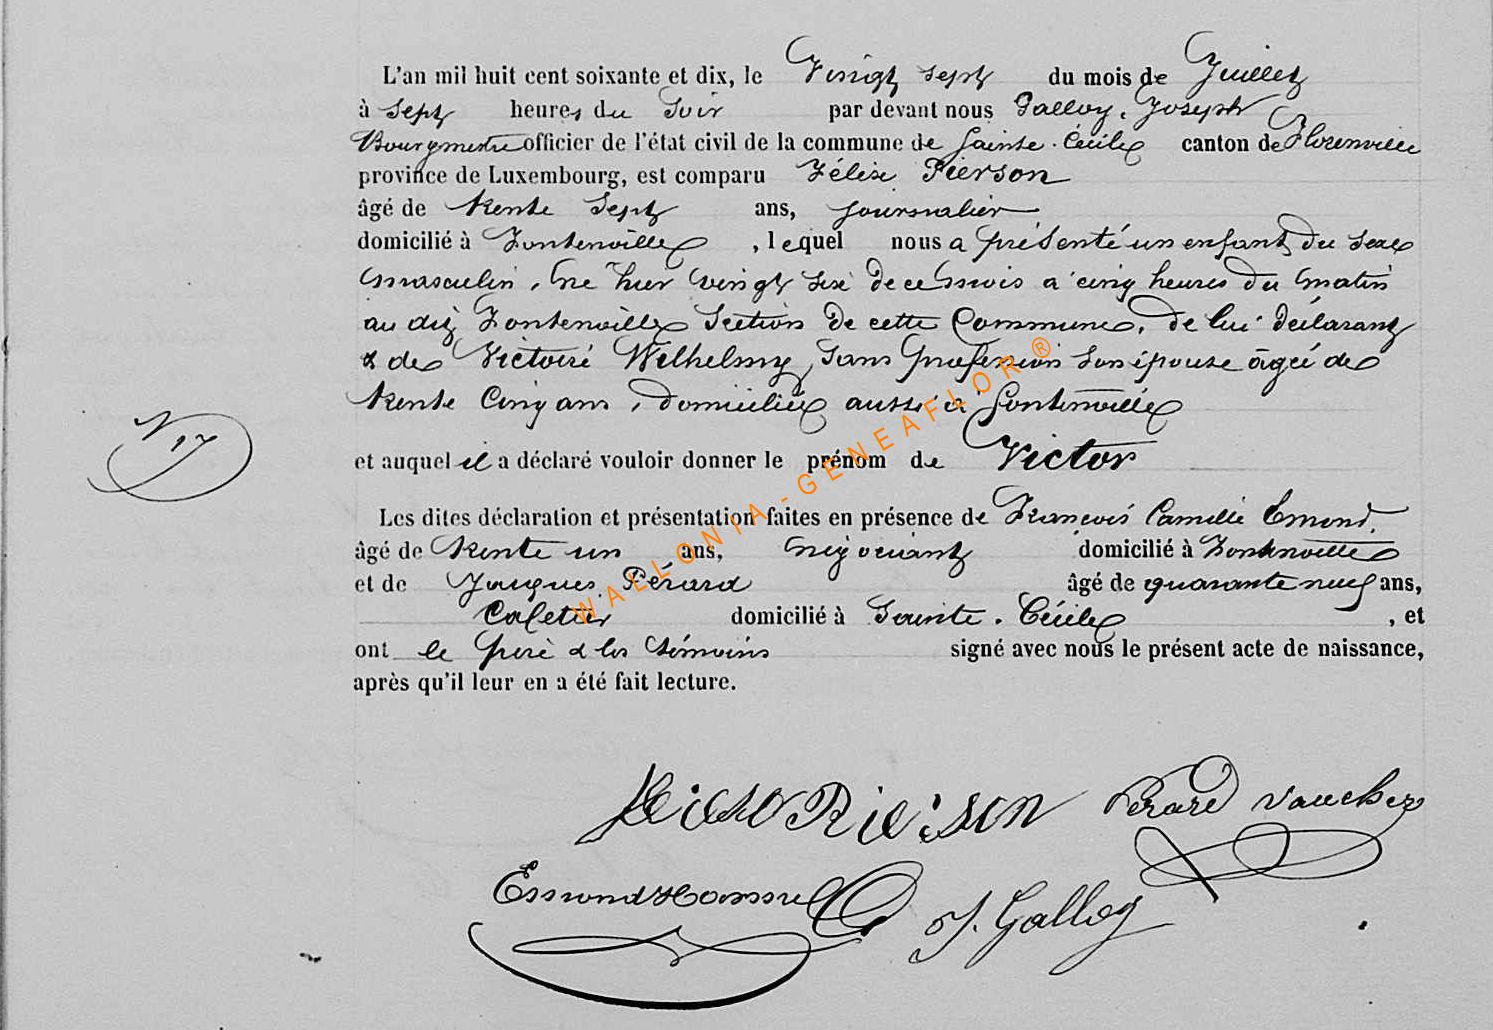 L'an mil huit cent soixante et dix, le Vingt sept du mois de Juillet
à sept heures du soir par devant nous Galloy, Joseph
Bourgmestre officier de l'état civil de la commune de Sainte-Cécile canton de Florenville
province de Luxembourg, est comparu Félix Pierson
âgé de trente sept ans, journalier
domicilié à Fontenoille, lequel nous a présenté un enfant du sexe
masculin, né hier vingt six de ce mois a cinq heures du matin
au dit Fontenoille Section de cette Commune, de lui déclarant
& de Victoire Wilhelmy, sans profession son épouse âgée de
trente cinq ans, domiciliée aussi à Fontenoille
N 17
et auquel il a déclaré vouloir donner le prénom de Victor
Les dites déclaration et présentation faites en présence de François Camille Emond,
âgé de trente un ans, négociant domicilié à Fontenoille
et de Jacques Pérard âgé de quarante neuf ans,
Cafetier domicilié à Sainte-Cécile, et
ont le père & les témoins signé avec nous le présent acte de naissance,
après qu'il leur en a été fait lecture.
Pérard Vaucher
Emond
J. Galloy
WALLONIA-GENEAFLOR®